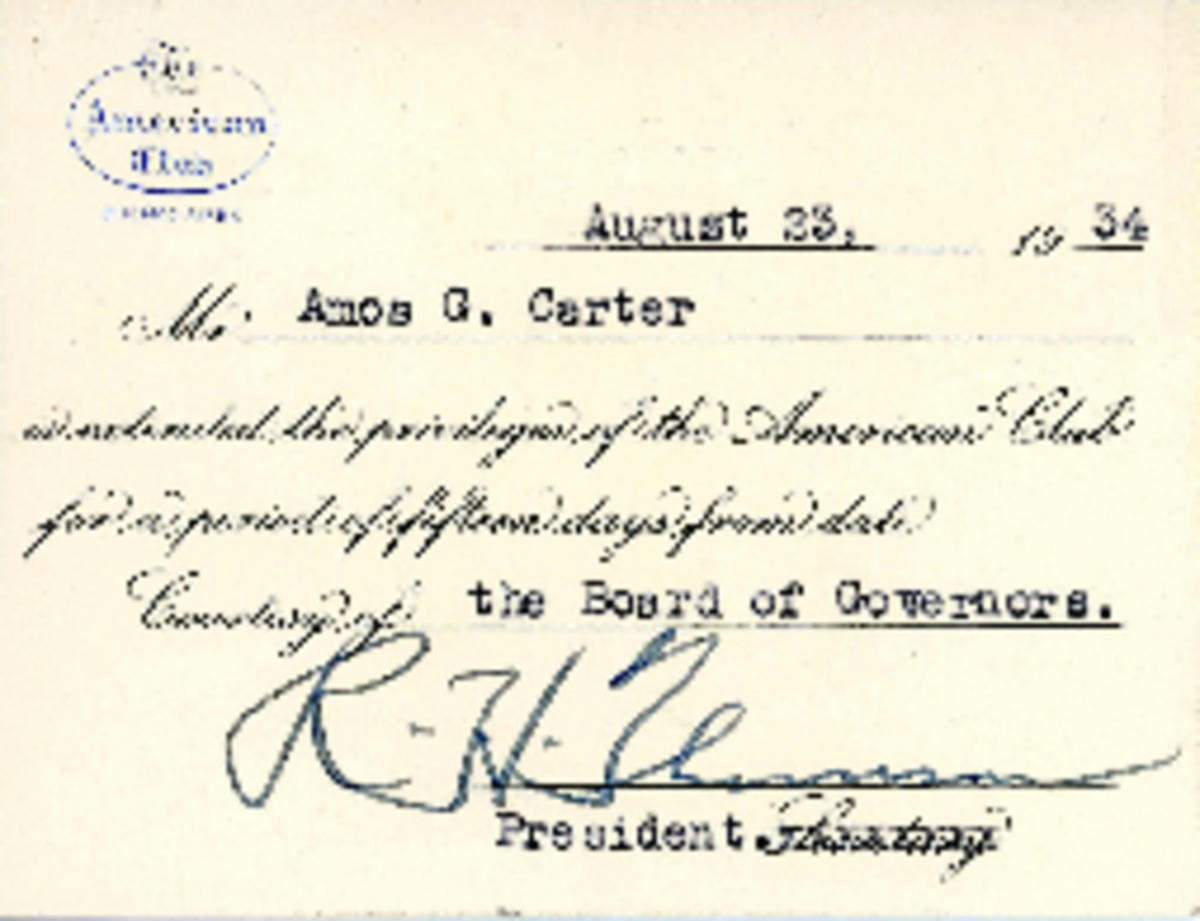 The
American
Club
BUENOS AIRES
August 23, 1934
Mr. Amos G. Carter
is extended the privileges of the American Club
for a period of fifteen days from date
Courtesy of the Board of Governors.
R. H.
President. Secretary